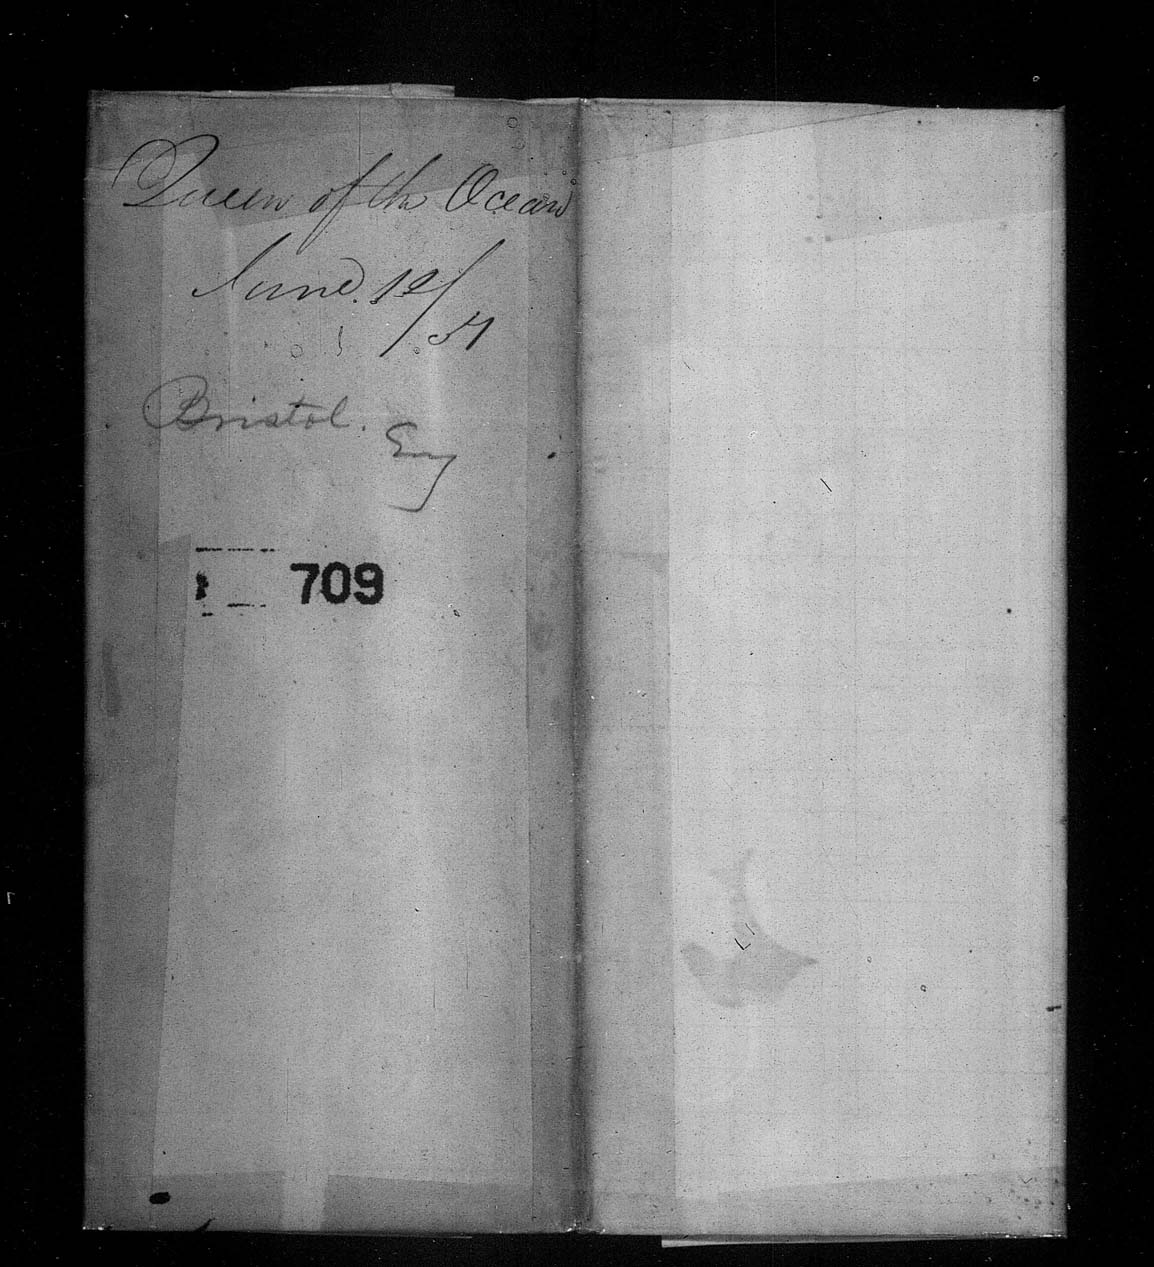 Queen of the Ocean
June 12/51
Bristol.
Eng
709